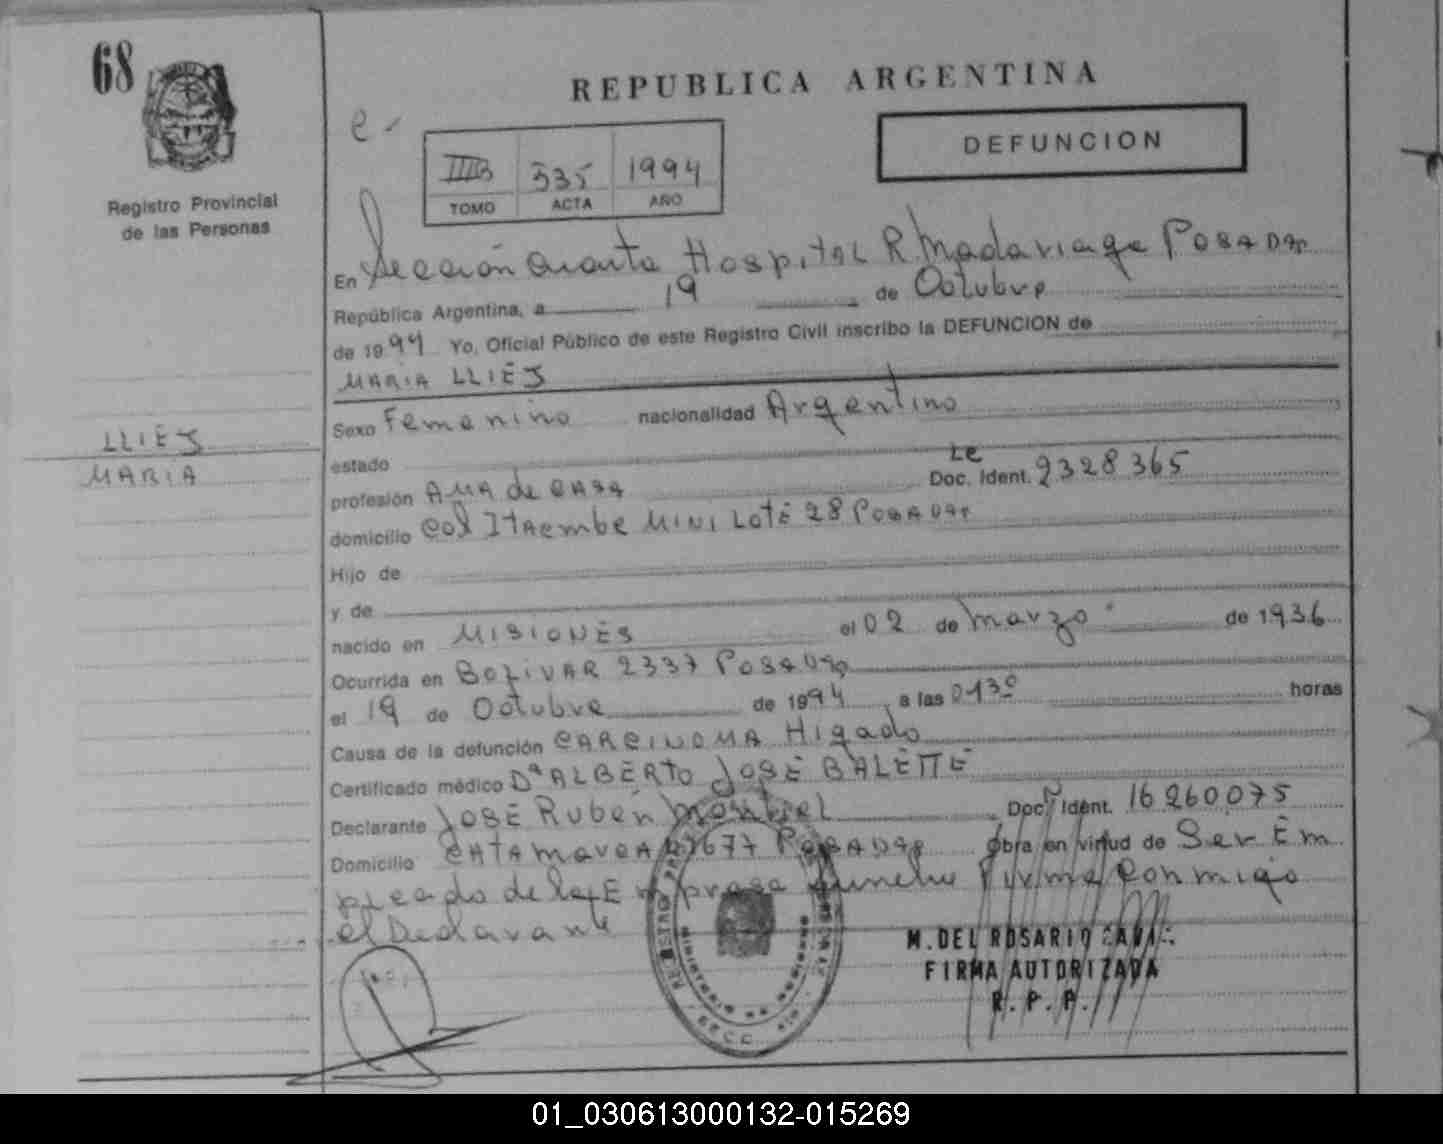 68
REPUBLICA ARGENTINA
DEFUNCION
Registro Provincial
de las Personas
e-
IIIB 535 1994
TOMO ACTA AÑO
En Sección Cuarta Hospital R Madariaga POSADAS
República Argentina, a 19 de Octubre
de 1994 Yo, Oficial Público de este Registro Civil inscribo la DEFUNCION de
MARIA LLIES
Sexo Femenino nacionalidad Argentino
LLIES
MARIA
estado
profesión AMA de CASA Doc. Ident. LC 9328365
domicilio Col ITAembe MINI LOTE 28 POSADAS
Hijo de
y de
nacido en MISIONES el 02 de Marzo de 1936
Ocurrida en BOLIVAR 2337 POSADAS
el 19 de Octubre de 1994 a las 0130 horas
Causa de la defunción CARCINOMA Higado
Certificado médico Dr ALBERTO JOSE
Declarante JOSE Rubén Montiel Doc. Ident. 16260075
Domicilio CATAMARCA 2677 POSADAS Obra en virtud de Ser Em
pleado de la Empresa funebre Firma Conmigo
el Declarante
REGISTRO
MINISTERIO DE GOBIERNO
M. DEL ROSARIO
FIRMA AUTORIZADA
R. P. P.
01_030613000132-015269